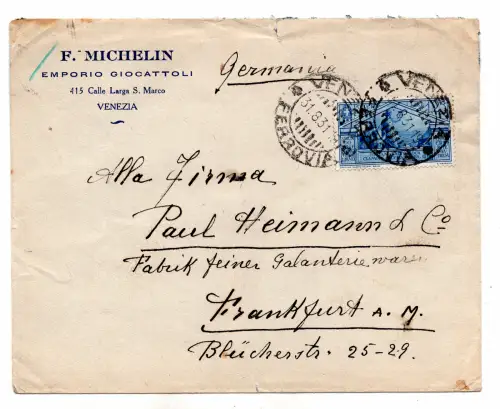 F. MICHELIN
EMPORIO GIOCATTOLI
415 Calle Larga S. Marco
VENEZIA
Germania
VENEZIA
31.8.31
FERROVIA
VENEZIA
Alla Firma
Paul Heimann & Co.
Fabrik feiner Galanteriewaren
Frankfurt A. M.
Blücherstr. 25-29.